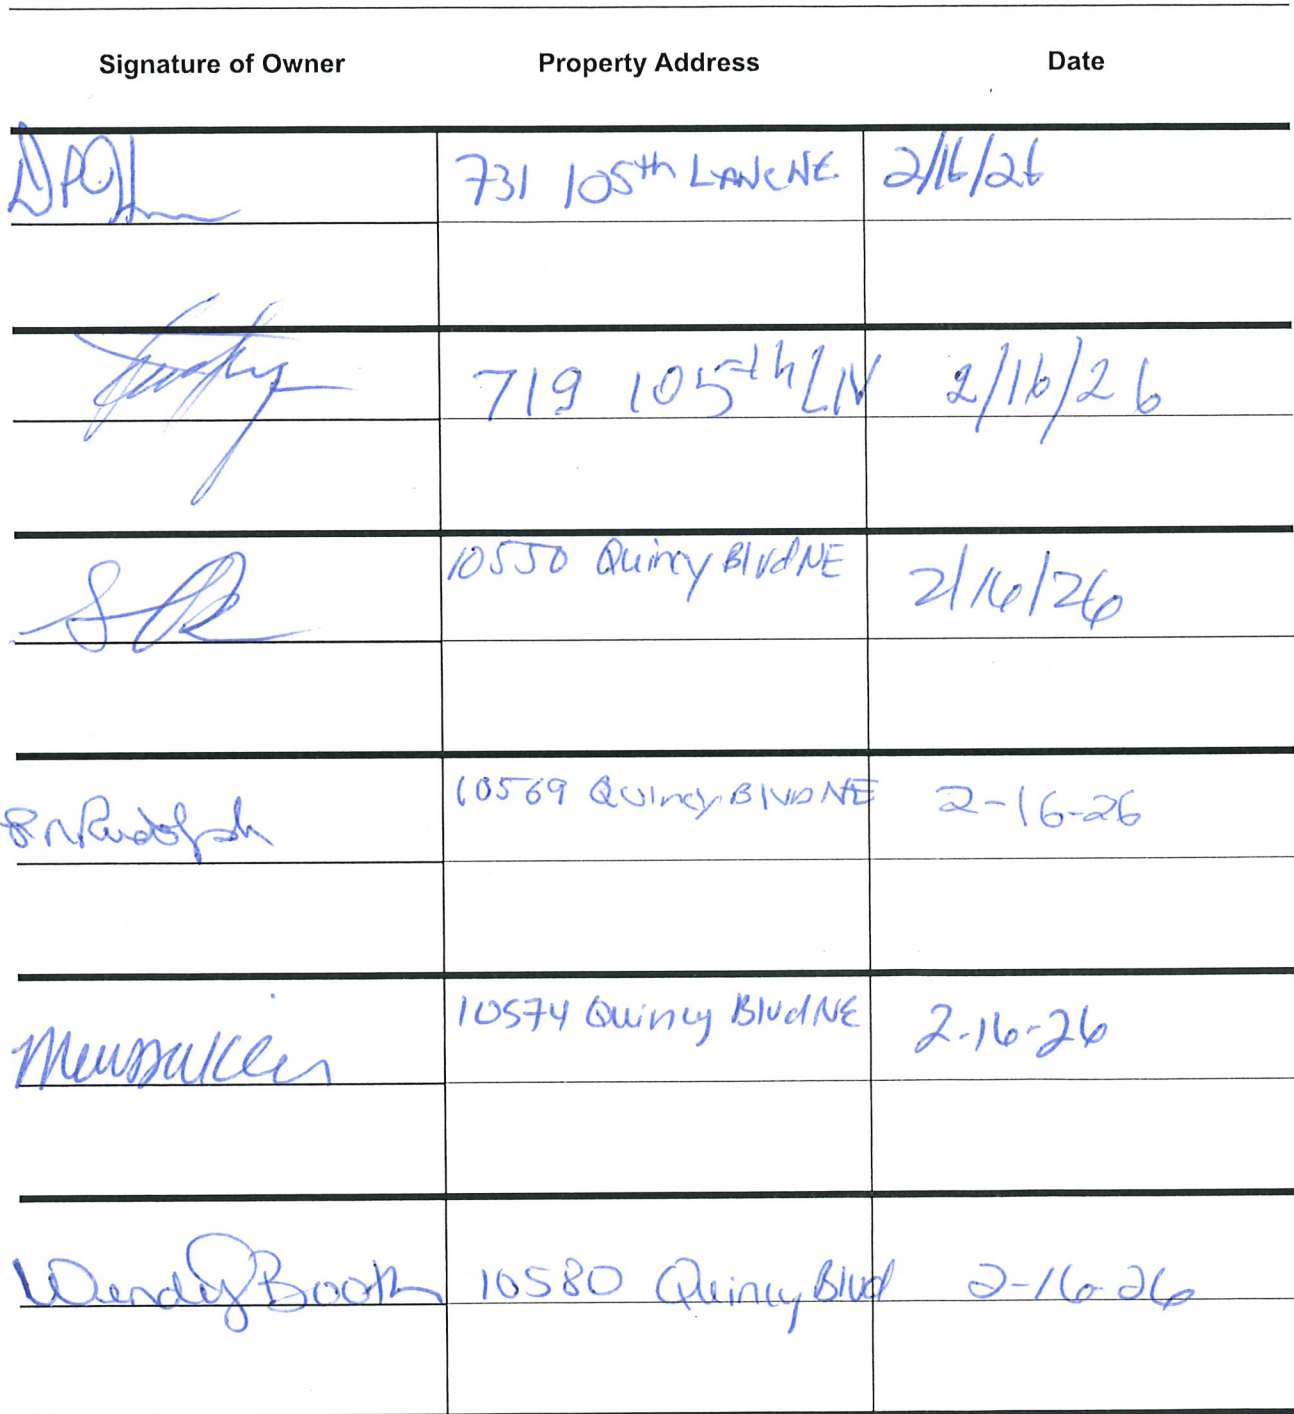 Signature of Owner Property Address Date
731 105th LANE NE 2/16/26
719 105th LN 2/16/26
10550 Quincy Blvd NE 2/16/26
10569 Quincy BLVD NE 2-16-26
10574 Quincy Blvd NE 2-16-26
Wendy Booth 10580 Quincy Blvd 2-16-26